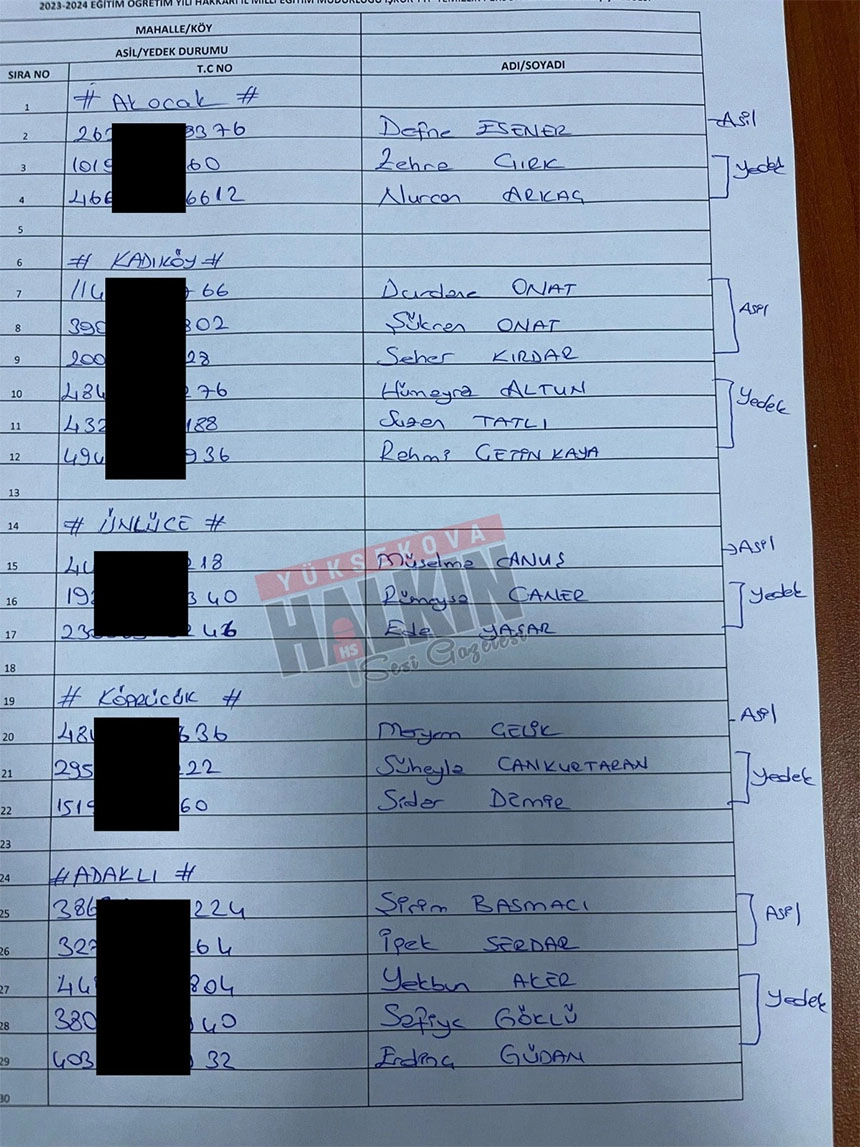 2023-2024 EĞİTİM ÖĞRETİM YILI HAKKARİ İL MİLLİ EĞİTİM MÜDÜRLÜĞÜ İŞKUR TYP TEMİZLİK
MAHALLE/KÖY
ASİL/YEDEK DURUMU
SIRA NO T.C NO ADI/SOYADI
1 # Akocak #
2 262 3376 Defne ESENER Asil
3 1019 60 Zehra ÇIRK Yedek
4 466 6612 Nurcan ARKAÇ
5
6 # KADIKÖY #
7 114 66 Durdane ONAT Asil
8 390 302 Şükran ONAT
9 200 28 Seher KIRDAR
10 484 276 Hümeyra ALTUN Yedek
11 432 188 Suzan TATLI
12 494 936 Rahmi ÇETİN KAYA
13
14 # ÜNLÜCE #
15 218 Müselma CANUŞ Asil
16 192 340 Rümeysa CANER Yedek
17 23 Eda YAŞAR
18
19 # KÖPRÜCÜK #
20 48 636 Meryem ÇELİK Asil
21 295 222 Süheyla CANKURTARAN Yedek
22 1519 60 Sidar DEMİR
23
24 # ADAKLI #
25 386 224 Şirin BASMACI Asil
26 327 64 İpek SERDAR
27 804 Yekbun AKER Yedek
28 380 40 Safiye GÖKLÜ
29 403 32 Erdinç GÜDAN
30
YÜKSEKOVA
HALKIN
HS
Sesi Gazetesi